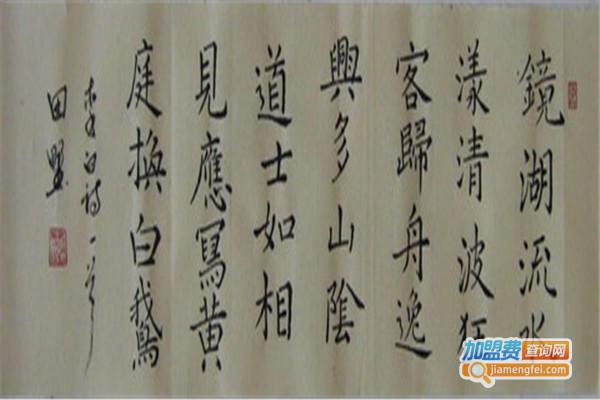 鏡湖流水
漾清波狂
客歸舟逸
興多山陰
道士如相
見應寫黄
庭換白鵝
李白詩一首
田
加盟费查询网
jiamengfei.com